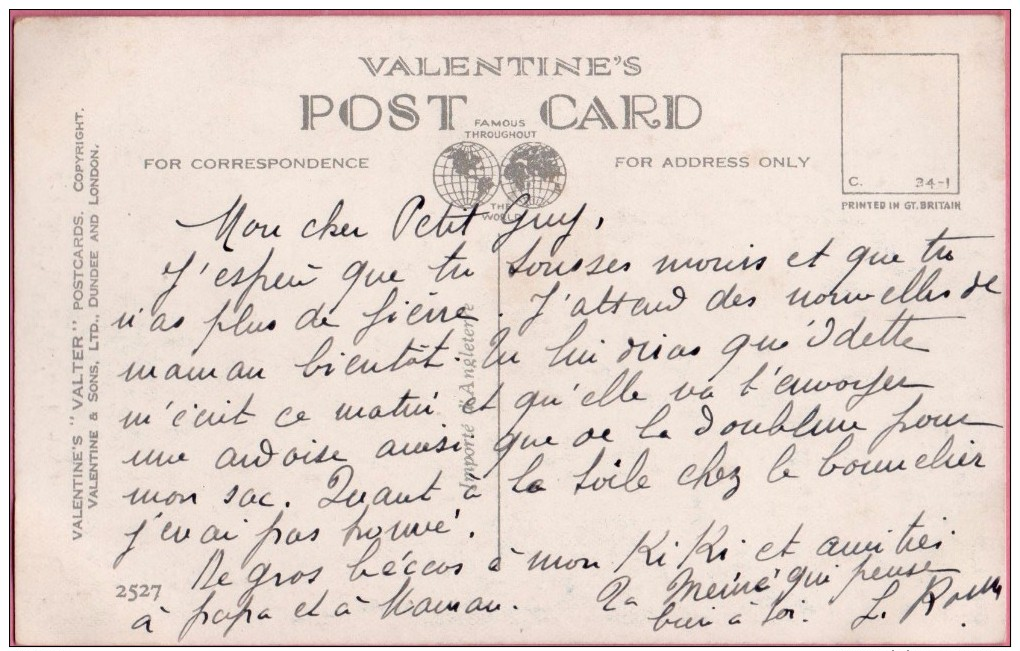 VALENTINE'S
POST CARD
FAMOUS
THROUGHOUT
THE
WORLD
FOR CORRESPONDENCE
FOR ADDRESS ONLY
C. 34-1
PRINTED IN GT. BRITAIN
VALENTINE'S "VALTER" POSTCARDS. COPYRIGHT.
VALENTINE & SONS, LTD., DUNDEE AND LONDON.
Importé d'Angleterre
Mon cher Petit Guy,
J'espère que tu tousses moins et que tu
n'as plus de fièvre. J'attend des nouvelles de
maman bientôt. Tu lui diras que Odette
m'écrit ce matin et qu'elle va t'envoyer
une ardoise ainsi que de la doublure pour
mon sac. Quant à la toile chez le bourrelier
j'en ai pas trouvé.
De gros béccos à mon Ki Ki et amitiés
à papa et à Maman. Ta Méiné qui pense
bien à toi. L.
2527